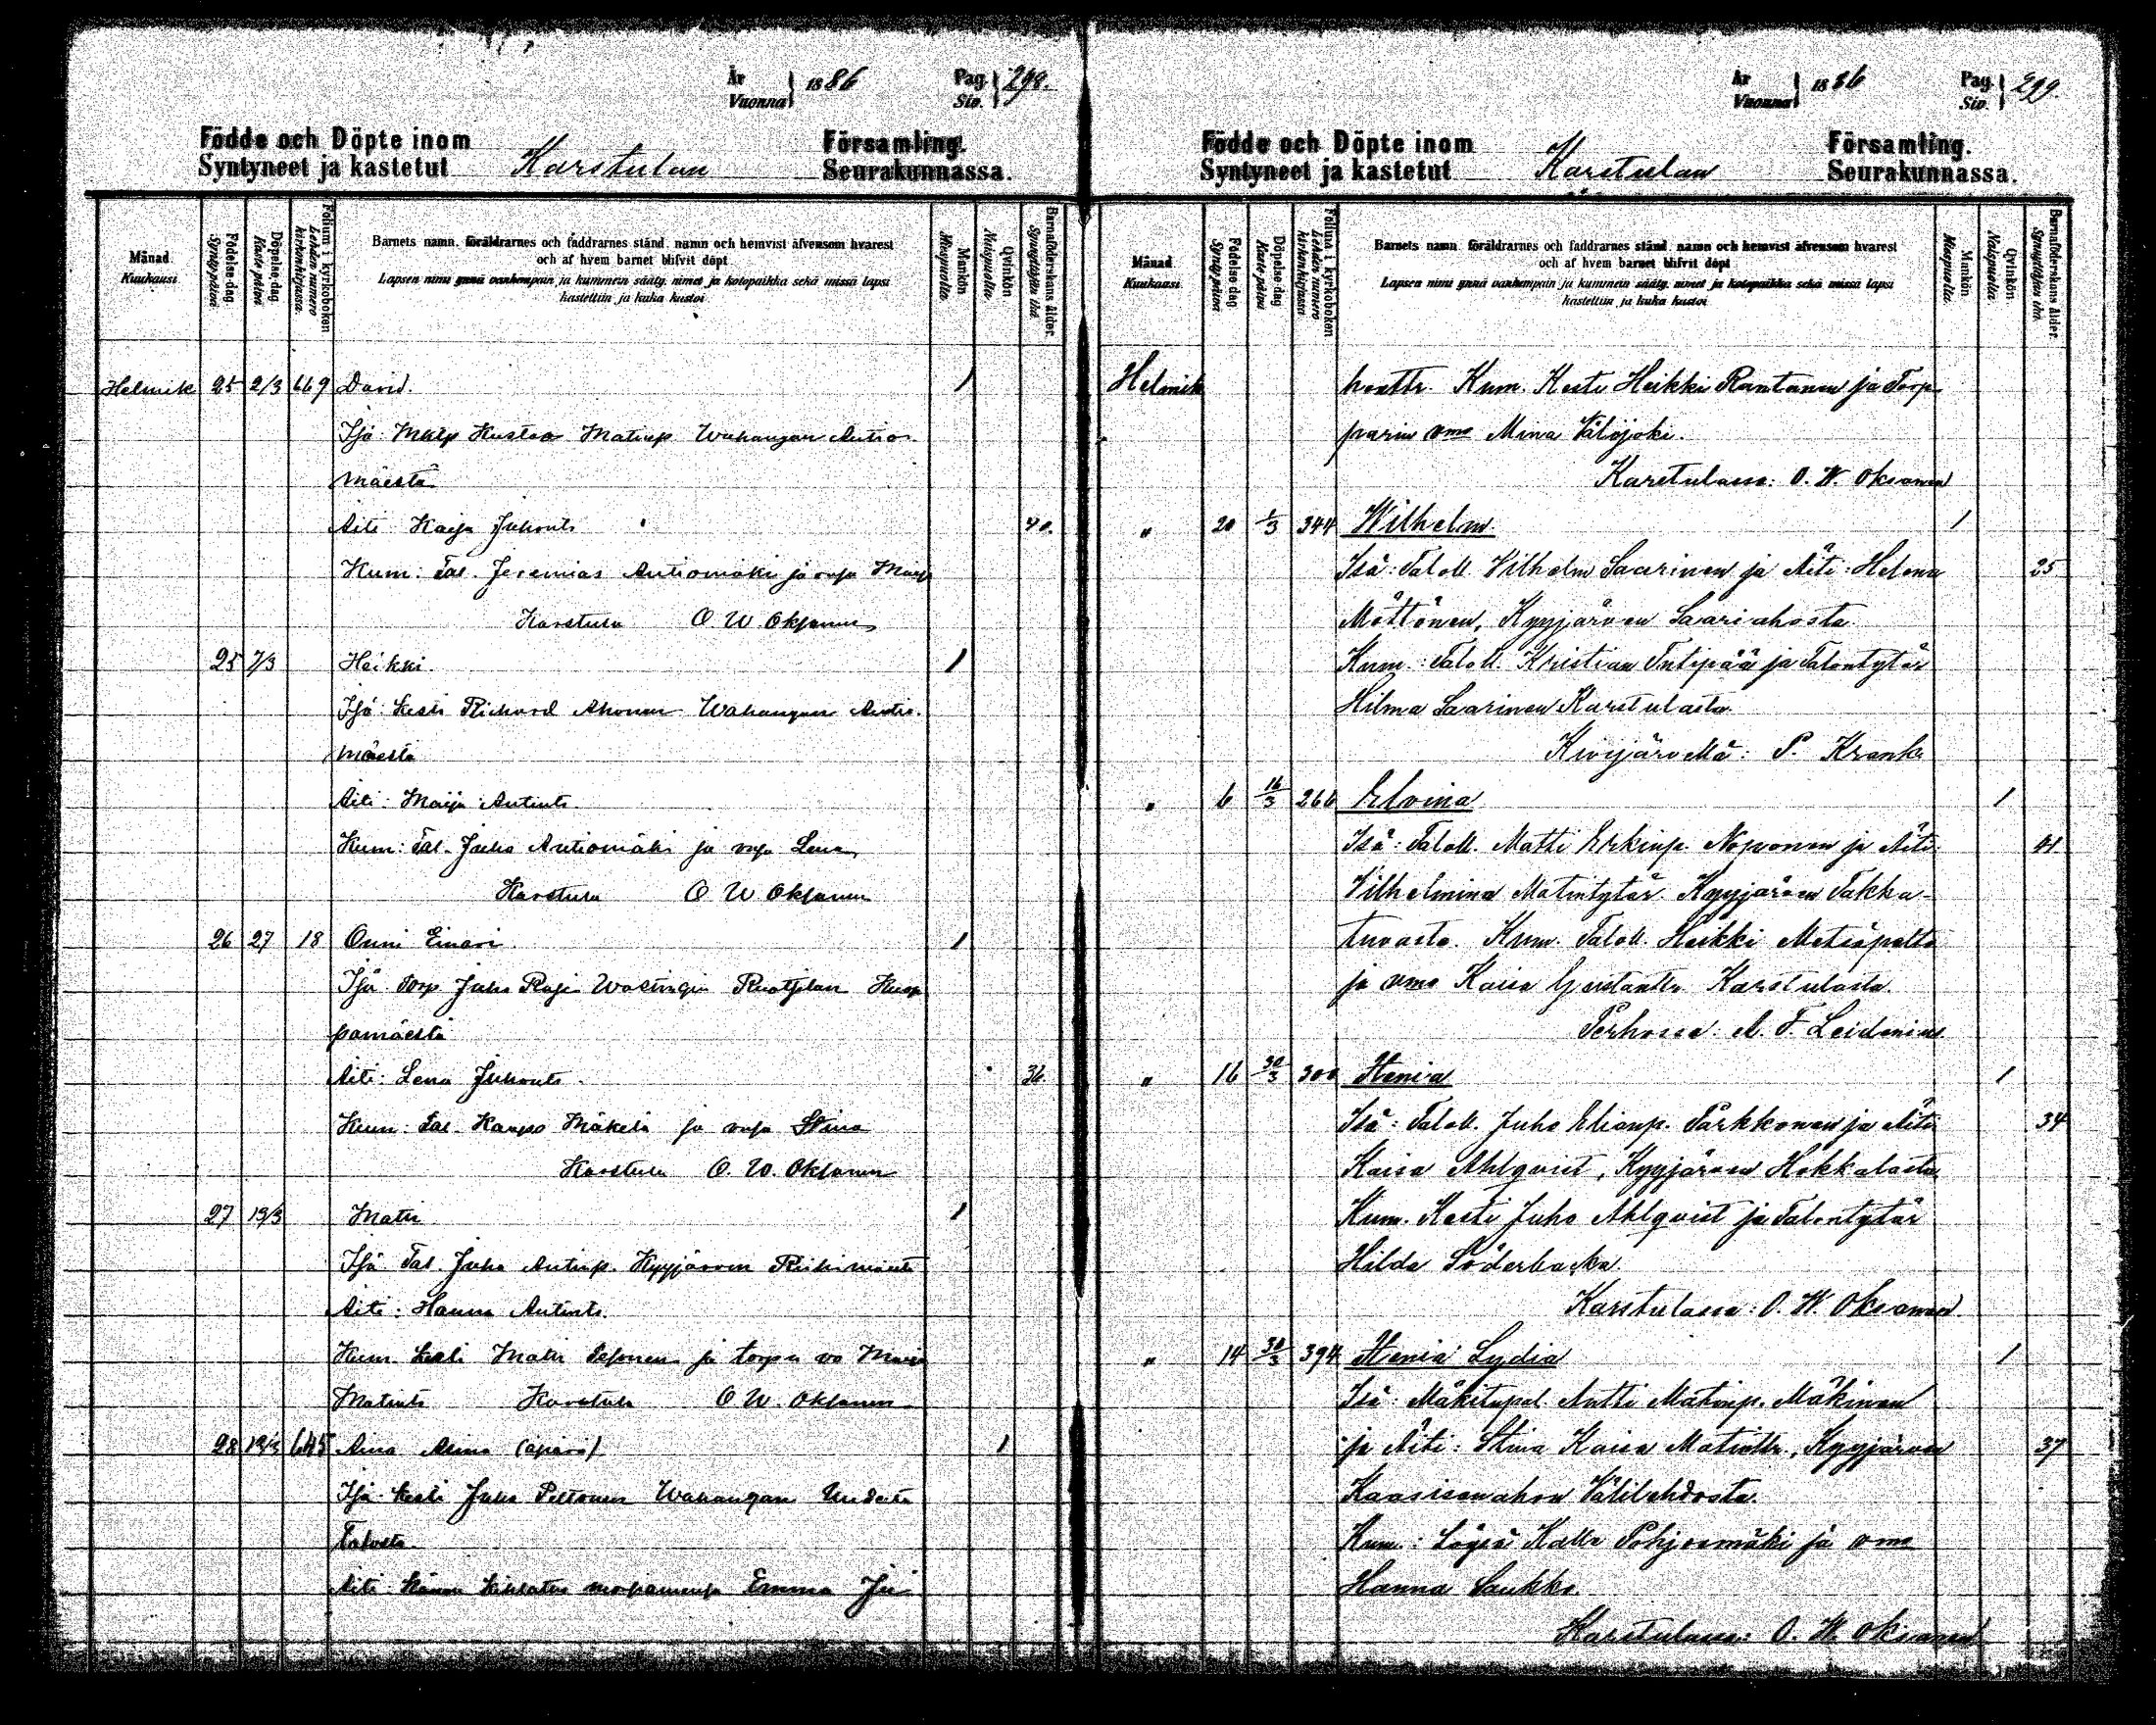 År Vuonna 1886 Pag. Siv. 298.
Födde och Döpte inom Församling.
Syntyneet ja kastetut Karstulan Seurakunnassa.
Månad Kuukausi
Födelse-dag Syntypäivä
Döpelse-dag Kaste-päivä
Folium i kyrkoboken Lehden numero kirkonkirjassa.
Barnets namn, föräldrarnes och faddrarnes stånd, namn och hemvist äfvensom hvarest
och af hvem barnet blifvit döpt
Lapsen nimi ynnä vanhempain ja kummein sääty, nimet ja kotopaikka sekä missä lapsi
kastettiin ja kuka kastoi
Mankön Miespuolta
Qvinkön Naispuolta
Barnaföderskans ålder. Synnyttäjän ikä
Helmik 25 2/3 669 David. 1
Isä: Mklp Kustaa Matinp. Wahangan Autio-
mäestä
Äiti Kaija Juhonts 40.
Kum: Tal. Jeremias Autiomäki ja vmja Maija
Karstula O W Oksanen
25 7/3 Heikki. 1
Isä: Kesti Richard Ahonen Wahangan Autio-
mäestä
Äiti: Maija Antints.
Kum: Tal. Juho Autiomäki ja vmja Lena
Karstula O W Oksanen
26 27 18 Onni Einari 1
Isä Torp. Juho Wastingin
pamäestä
Äiti: Lena Juhonts. 36.
Kum: Tal. Kaapo Mäkelä ja vmja Stina
Karstula O. W. Oksanen
27 19/3 Matti 1
Isä Tal. Juho Antinp. Kyyjärven Riihimäestä
Äiti: Hanna Antints.
Kum. Kesti Matti ja torpn vo Maija
Matints Karstula O W. Oksanen
28 19/3 645 Aina Alina (äpärä) 1
Isä Kesti Juho Peltonen Wahangan Uudesta
Talosta.
Äiti Emma Ju
År Vuonna 1886 Pag. Siv. 299.
Födde och Döpte inom Församling.
Syntyneet ja kastetut Karstulan Seurakunnassa.
Månad Kuukausi
Födelse-dag Syntypäivä
Döpelse-dag Kaste-päivä
Folium i kyrkoboken Lehden numero kirkonkirjassa
Barnets namn, föräldrarnes och faddrarnes stånd, namn och hemvist äfvensom hvarest
och af hvem barnet blifvit döpt
Lapsen nimi ynnä vanhempain ja kummein sääty, nimet ja kotopaikka sekä missä lapsi
kastettiin ja kuka kastoi
Mankön Miespuolta
Qvinkön Naispuolta
Barnaföderskans ålder. Synnyttäjän ikä.
Helmik honttr. Kum. Kesti Heikki Rantanen ja Torp
parin vmo Mina Välijoki.
Karstulassa: O. W. Oksanen
" 20 1/3 344 Wilhelm 1
Isä: Taloll. Vilhelm Saarinen ja Äiti: Helena 25
Möttönen, Kyyjärven Saariahosta.
Kum.: Taloll. Kristian Intipää ja Talontytär
Hilma Saarinen Karstulasta.
Kivijärvellä: P. Krank
" 6 16/3 266 Elvina 1
Isä: Taloll. Matti Erkinp. Noponen ja Äiti 41
Vilhelmina Matintytär. Kyyjärven Takka-
tuvasta. Kum. Taloll. Heikki Metsäpelto
ja vmo Kaisa Karstulasta.
Perhossa: A. F. Leidenius
" 16 30/3 300 Stenia 1
Isä: Taloll. Juho Elianp. Parkkonen ja Äiti 34
Kaisa Ahlqvist, Kyyjärven Hokkalasta
Kum. Kesti Juho Ahlqvist ja Talontytär
Hilda Söderbacka.
Karstulassa: O. W. Oksanen.
" 14 30/3 394 Stenia Lydia 1
Isä: Mäkitupal. Antti Matinp. Mäkinen
ja Äiti: Stina Kaisa Matinttr., Kyyjärven 37
Kaasisenahon Välilehdosta.
Kum.: Kalle Pohjosmäki ja vmo
Hanna Saukko.
Karstulassa: O. W. Oksanen